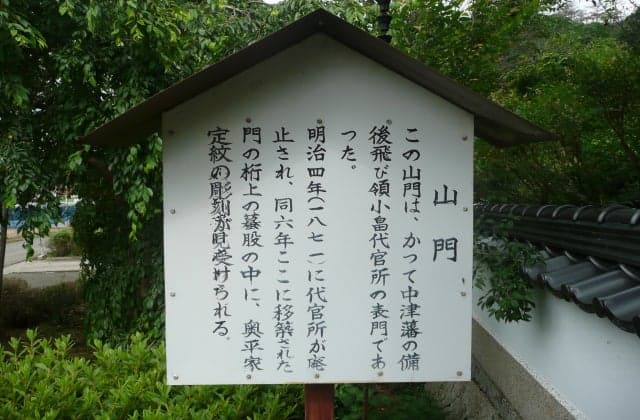 山門
この山門は、かつて中津藩の備
後飛び領小畠代官所の表門であ
った。
明治四年(一八七一)に代官所が廃
止され、同六年ここに移築された
門の桁上の蟇股の中に、奥平家
定紋の彫刻が見受けられる。